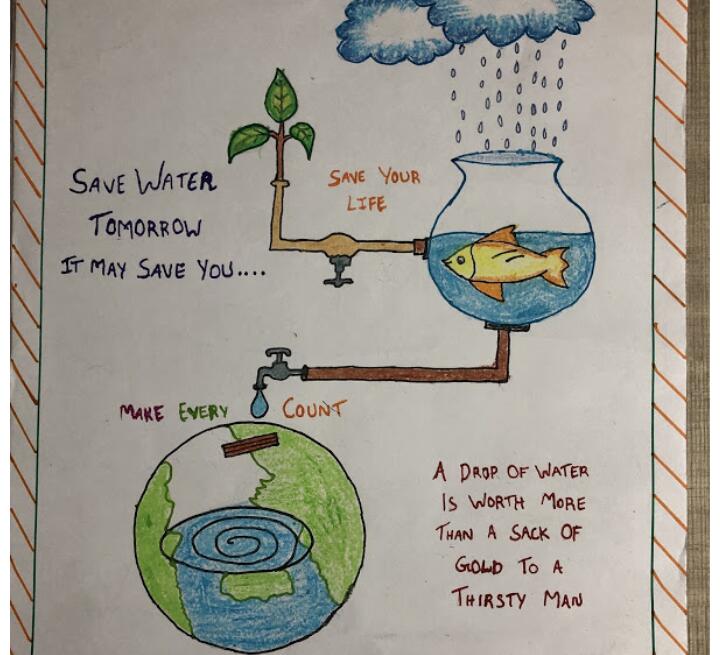 SAVE WATER
TOMORROW
IT MAY SAVE YOU....
SAVE YOUR
LIFE
MAKE EVERY COUNT
A DROP OF WATER
IS WORTH MORE
THAN A SACK OF
GOLD TO A
THIRSTY MAN